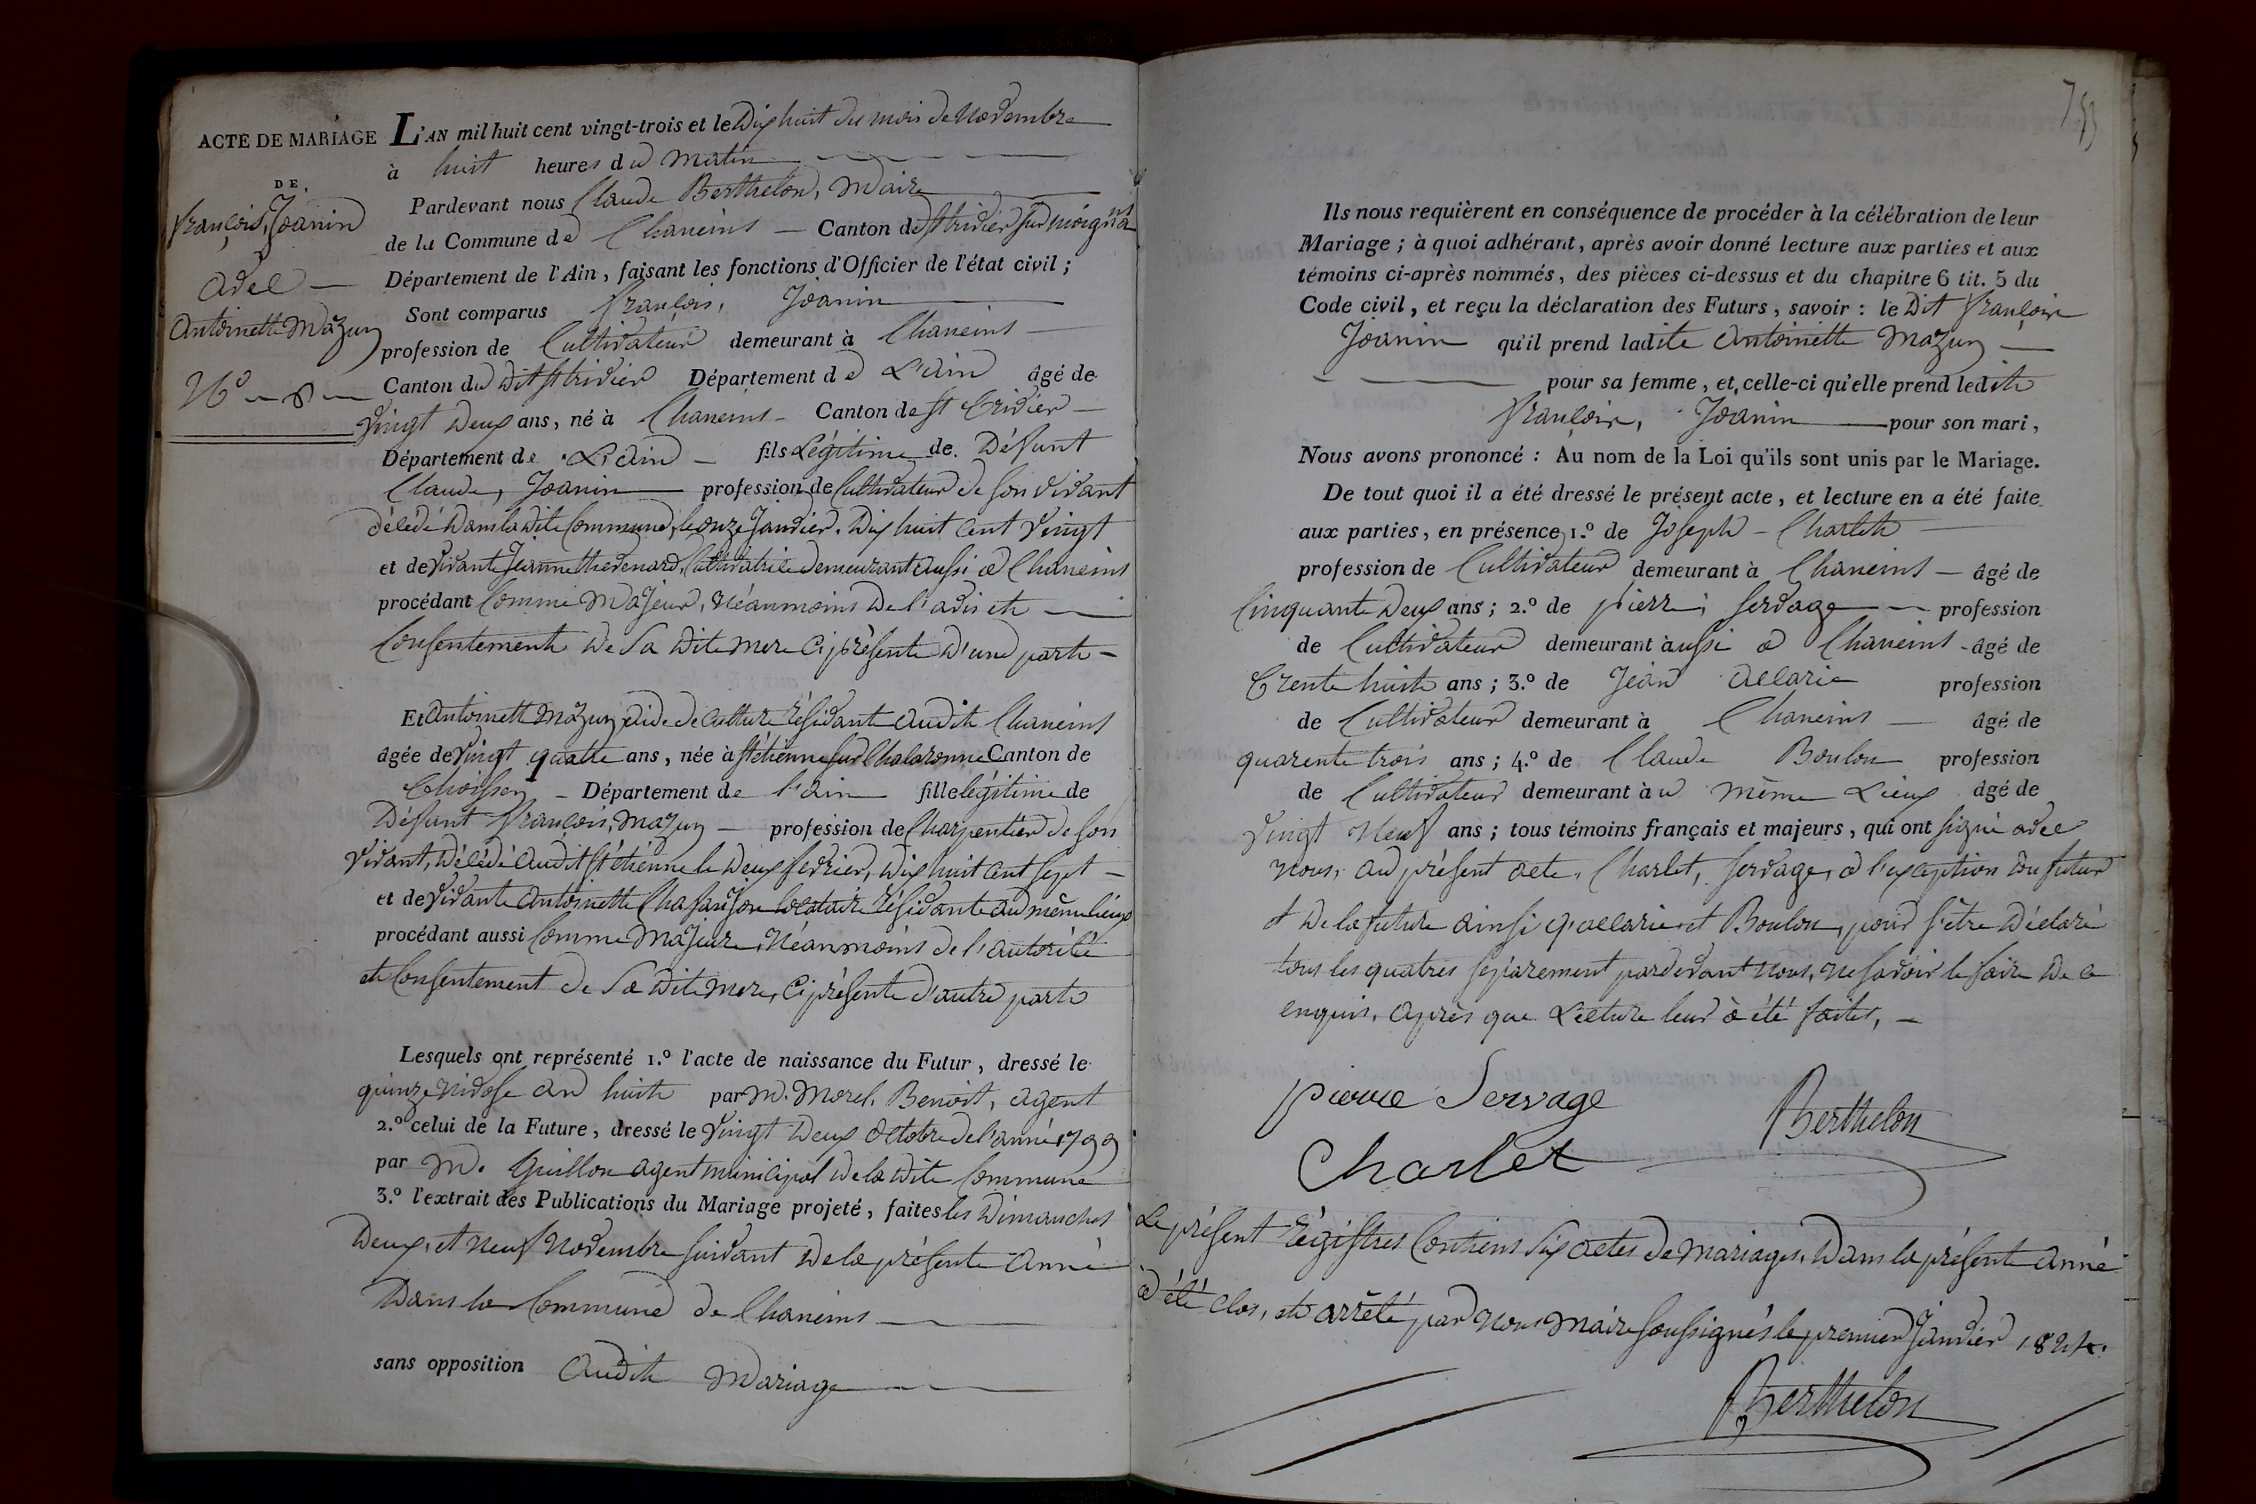 ACTE DE MARIAGE
DE
François, Joanin
avec
Antoinette Mazuy
N.o 8
L'AN mil huit cent vingt-trois et le Dix huit du mois de Novembre
à huit heures du matin
Pardevant nous Claude Berthelon, Maire
de la Commune de Chaneins Canton de St trivier sur moignans
Département de l'Ain, faisant les fonctions d'Officier de l'état civil;
Sont comparus François, Joanin
profession de Cultivateur demeurant à Chaneins
Canton du dit St trivier Département de L'ain âgé de
vingt deux ans, né à Chaneins Canton de St Trivier
Département de L'ain fils Légitime de Défunt
Claude, Joanin profession de Cultivateur de son vivant
décédé dans la dite Commune, le onze Janvier, Dix huit cent vingt
et de vivante Jeanne thevenard, Cultivatrice demeurant aussi a Chaneins
procédant Comme Majeur, Néanmoins de l'avis et
Consentement de sa dite mere ci présente d'une part
Et Antoinette Mazuy, aide de culture résidant audit Chaneins
âgée de vingt quatre ans, née à St étienne sur Chalaronne Canton de
Thoissey Département de l'ain fille légitime de
Défunt François, Mazuy profession de Charpentier de son
vivant, décédé audit St étienne le deux fevrier, dix huit cent sept
et de vivante Antoinette locataire résidante au même lieux
procédant aussi Comme Majeure, Néanmoins de l'autorité
et Consentement de Sa dite mere, ci présente d'autre part
Lesquels ont représenté 1.º l'acte de naissance du Futur, dressé le
quinze nivose an huit par M. Morel, Benoit, agent
2.º celui de la Future, dressé le vingt deux octobre de l'anné 1799
par M. Guillon agent municipal de la dite Commune
3.º l'extrait des Publications du Mariage projeté, faites les Dimanches
Deux, et neuf Novembre suivant de la présente anné
Dans la Commune de Chaneins
sans opposition audit Mariage
753
Ils nous requièrent en conséquence de procéder à la célébration de leur
Mariage; à quoi adhérant, après avoir donné lecture aux parties et aux
témoins ci-après nommés, des pièces ci-dessus et du chapitre 6 tit. 5 du
Code civil, et reçu la déclaration des Futurs, savoir: le dit François
Joanin qu'il prend ladite Antoinette Mazuy
pour sa femme, et celle-ci qu'elle prend ledit
François, Joanin pour son mari,
Nous avons prononcé: Au nom de la Loi qu'ils sont unis par le Mariage.
De tout quoi il a été dressé le présent acte, et lecture en a été faite
aux parties, en présence, 1.º de Joseph Charlet
profession de Cultivateur demeurant à Chaneins âgé de
Cinquante deux ans; 2.º de pierre, servage profession
de Cultivateur demeurant aussi a Chaneins âgé de
Trente huit ans; 3.º de Jean allarie profession
de Cultivateur demeurant à Chaneins âgé de
quarente trois ans; 4.º de Claude Boulon profession
de Cultivateur demeurant au même Lieux âgé de
vingt Neuf ans; tous témoins français et majeurs, qui ont signé avec
nous, au présent acte, Charlet, servage, a l'exception du futur
et de la future ainsi qu'allarie et Boulon, pour s'être déclaré
tous les quatres séparement pardevant nous, ne savoir le faire de ce
enquis, après que Lecture leur à été faites,
pierre Servage
Berthelon
Charlet
Le présent régistres Contiens Six actes de mariages, dans la présente anné
a été clos, et arrêté par nous Maire soussignés le premier Janvier 1824.
Berthelon